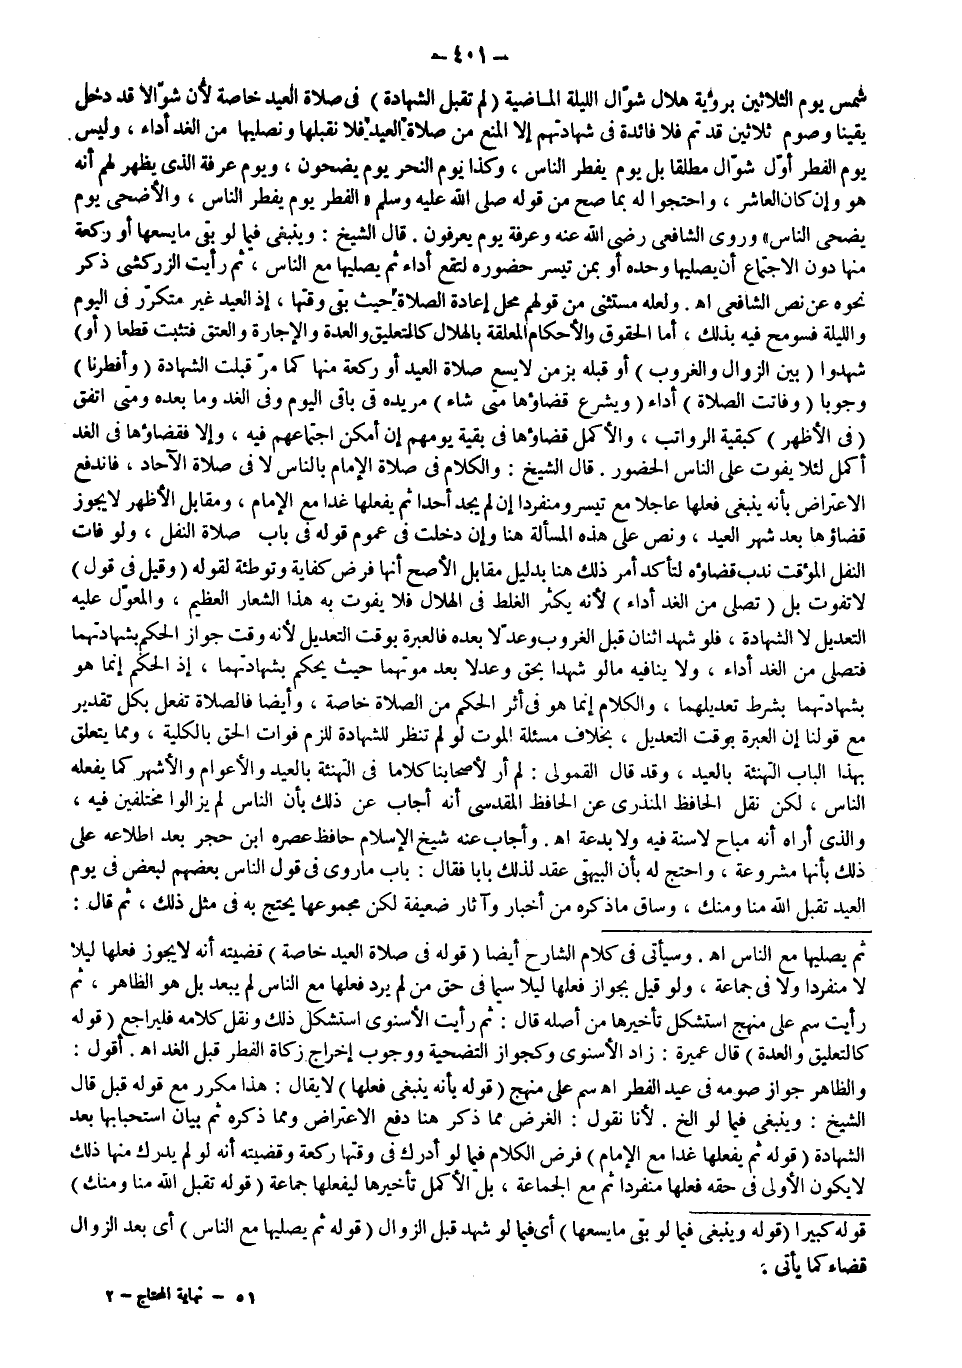 - ٤٠١ -
شمس يوم الثلاثين برؤية هلال شوّال الليلة الماضية ( لم تقبل الشهادة ) فى صلاة العيد خاصة لأن شوّالا قد دخل
يقينا وصوم ثلاثين قد تم فلا فائدة فى شهادتهم إلا المنع من صلاة العيد فلا نقبلها ونصليها من الغد أداء ، وليس
يوم الفطر أوّل شوّال مطلقا بل يوم يفطر الناس ، وكذا يوم النحر يوم يضحون ، ويوم عرفة الذى يظهر لهم أنه
هو وإن كان العاشر ، واحتجوا له بما صح من قوله صلى الله عليه وسلم « الفطر يوم يفطر الناس ، والأضحى يوم
يضحى الناس» وروى الشافعى رضى الله عنه وعرفة يوم يعرفون . قال الشيخ : وينبغى فيما لو بقى مايسعها أو ركعة
منها دون الاجتماع أن يصليها وحده أو بمن تيسر حضوره لتقع أداء ثم يصليها مع الناس ، ثم رأيت الزركشى ذكر
نحوه عن نص الشافعى اه . ولعله مستثنى من قولهم محل إعادة الصلاة حيث بقى وقتها ، إذ العيد غير متكرّر فى اليوم
والليلة فسومح فيه بذلك ، أما الحقوق والأحكام المعلقة بالهلال كالتعليق والعدة والإجارة والعتق فتثبت قطعا ( أو )
شهدوا ( بين الزوال والغروب ) أو قبله بزمن لايسع صلاة العيد أو ركعة منها كما مرّ قبلت الشهادة ( وأفطرنا )
وجوبا ( وفاتت الصلاة ) أداء ( ويشرع قضاؤها متى شاء ) مريده فى باقى اليوم وفى الغد وما بعده ومتى اتفق
( فى الأظهر ) كبقية الرواتب ، والأكمل قضاؤها فى بقية يومهم إن أمكن اجتماعهم فيه ، وإلا فقضاؤها فى الغد
أكمل لئلا يفوت على الناس الحضور . قال الشيخ : والكلام فى صلاة الإمام بالناس لا فى صلاة الآحاد ، فاندفع
الاعتراض بأنه ينبغى فعلها عاجلا مع تيسر ومنفردا إن لم يجد أحدا ثم يفعلها غدا مع الإمام ، ومقابل الأظهر لايجوز
قضاؤها بعد شهر العيد ، ونص على هذه المسألة هنا وإن دخلت فى عموم قوله فى باب صلاة النفل ، ولو فات
النفل المؤقت ندب قضاؤه لتأكد أمر ذلك هنا بدليل مقابل الأصح أنها فرض كفاية وتوطئة لقوله ( وقيل فى قول )
لاتفوت بل ( تصلى من الغد أداء ) لأنه يكثر الغلط فى الهلال فلا يفوت به هذا الشعار العظيم ، والمعوّل عليه
التعديل لا الشهادة ، فلو شهد اثنان قبل الغروب وعدّلا بعده فالعبرة بوقت التعديل لأنه وقت جواز الحكم بشهادتهما
فتصلى من الغد أداء ، ولا ينافيه مالو شهدا بحق وعدلا بعد موتهما حيث يحكم بشهادتهما ، إذ الحكم إنما هو
بشهادتهما بشرط تعديلهما ، والكلام إنما هو فى أثر الحكم من الصلاة خاصة ، وأيضا فالصلاة تفعل بكل تقدير
مع قولنا إن العبرة بوقت التعديل ، بخلاف مسئلة الموت لو لم تنظر للشهادة للزم فوات الحق بالكلية ، ومما يتعلق
بهذا الباب التهنئة بالعيد ، وقد قال القمولى : لم أر لأصحابنا كلاما فى التهنئة بالعيد والأعوام والأشهر كما يفعله
الناس ، لكن نقل الحافظ المنذرى عن الحافظ المقدسى أنه أجاب عن ذلك بأن الناس لم يزالوا مختلفين فيه ،
والذى أراه أنه مباح لاسنة فيه ولا بدعة اه . وأجاب عنه شيخ الإسلام حافظ عصره ابن حجر بعد اطلاعه على
ذلك بأنها مشروعة ، واحتج له بأن البيهقى عقد لذلك بابا فقال : باب ماروى فى قول الناس بعضهم لبعض فى يوم
العيد تقبل الله منا ومنك ، وساق ماذكره من أخبار وآثار ضعيفة لكن مجموعها يحتج به فى مثل ذلك ، ثم قال :
ثم يصليها مع الناس اه . وسيأتى فى كلام الشارح أيضا ( قوله فى صلاة العيد خاصة ) قضيته أنه لايجوز فعلها ليلا
لا منفردا ولا فى جماعة ، ولو قيل بجواز فعلها ليلا سيما فى حق من لم يرد فعلها مع الناس لم يبعد بل هو الظاهر ، ثم
رأيت سم على منهج استشكل تأخيرها من أصله قال : ثم رأيت الأسنوى استشكل ذلك ونقل كلامه فليراجع ( قوله
كالتعليق والعدة ) قال عميرة : زاد الأسنوى وكجواز التضحية ووجوب إخراج زكاة الفطر قبل الغد اه . أقول :
والظاهر جواز صومه فى عيد الفطر اه سم على منهج ( قوله بأنه ينبغى فعلها ) لايقال : هذا مكرر مع قوله قبل قال
الشيخ : وينبغى فيما لو الخ . لأنا نقول : الغرض مما ذكر هنا دفع الاعتراض ومما ذكره ثم بيان استحبابها بعد
الشهادة ( قوله ثم يفعلها غدا مع الإمام ) فرض الكلام فيما لو أدرك فى وقتها ركعة وقضيته أنه لو لم يدرك منها ذلك
لايكون الأولى فى حقه فعلها منفردا ثم مع الجماعة ، بل الأكمل تأخيرها ليفعلها جماعة ( قوله تقبل الله منا ومنك )
قوله كبيرا ( قوله وينبغى فيما لو بقى مايسعها ) أى فيما لو شهد قبل الزوال ( قوله ثم يصليها مع الناس ) أى بعد الزوال
قضاء كما يأتى .
٥١ - نهاية المحتاج - ٢